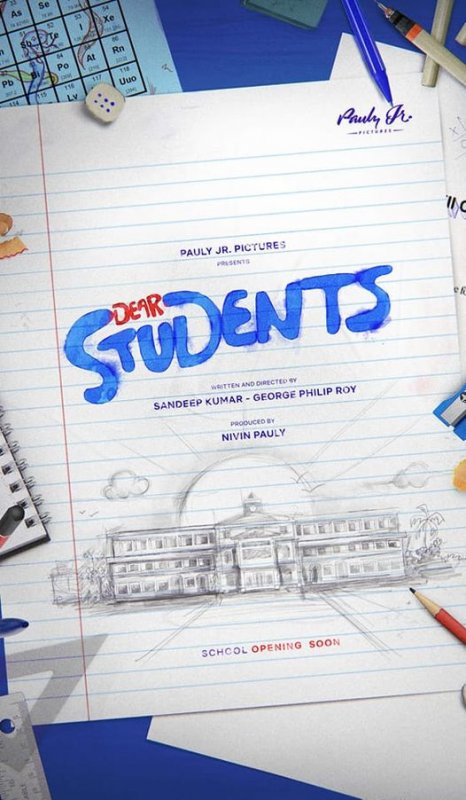 As
Rn
Te
Po
Xe
Rn
Pb
Bi
At
Uuo
Pauly Jr.
PICTURES
PAULY JR. PICTURES
PRESENTS
DEAR
STUDENTS
WRITTEN AND DIRECTED BY
SANDEEP KUMAR - GEORGE PHILIP ROY
PRODUCED BY
NIVIN PAULY
SCHOOL OPENING SOON